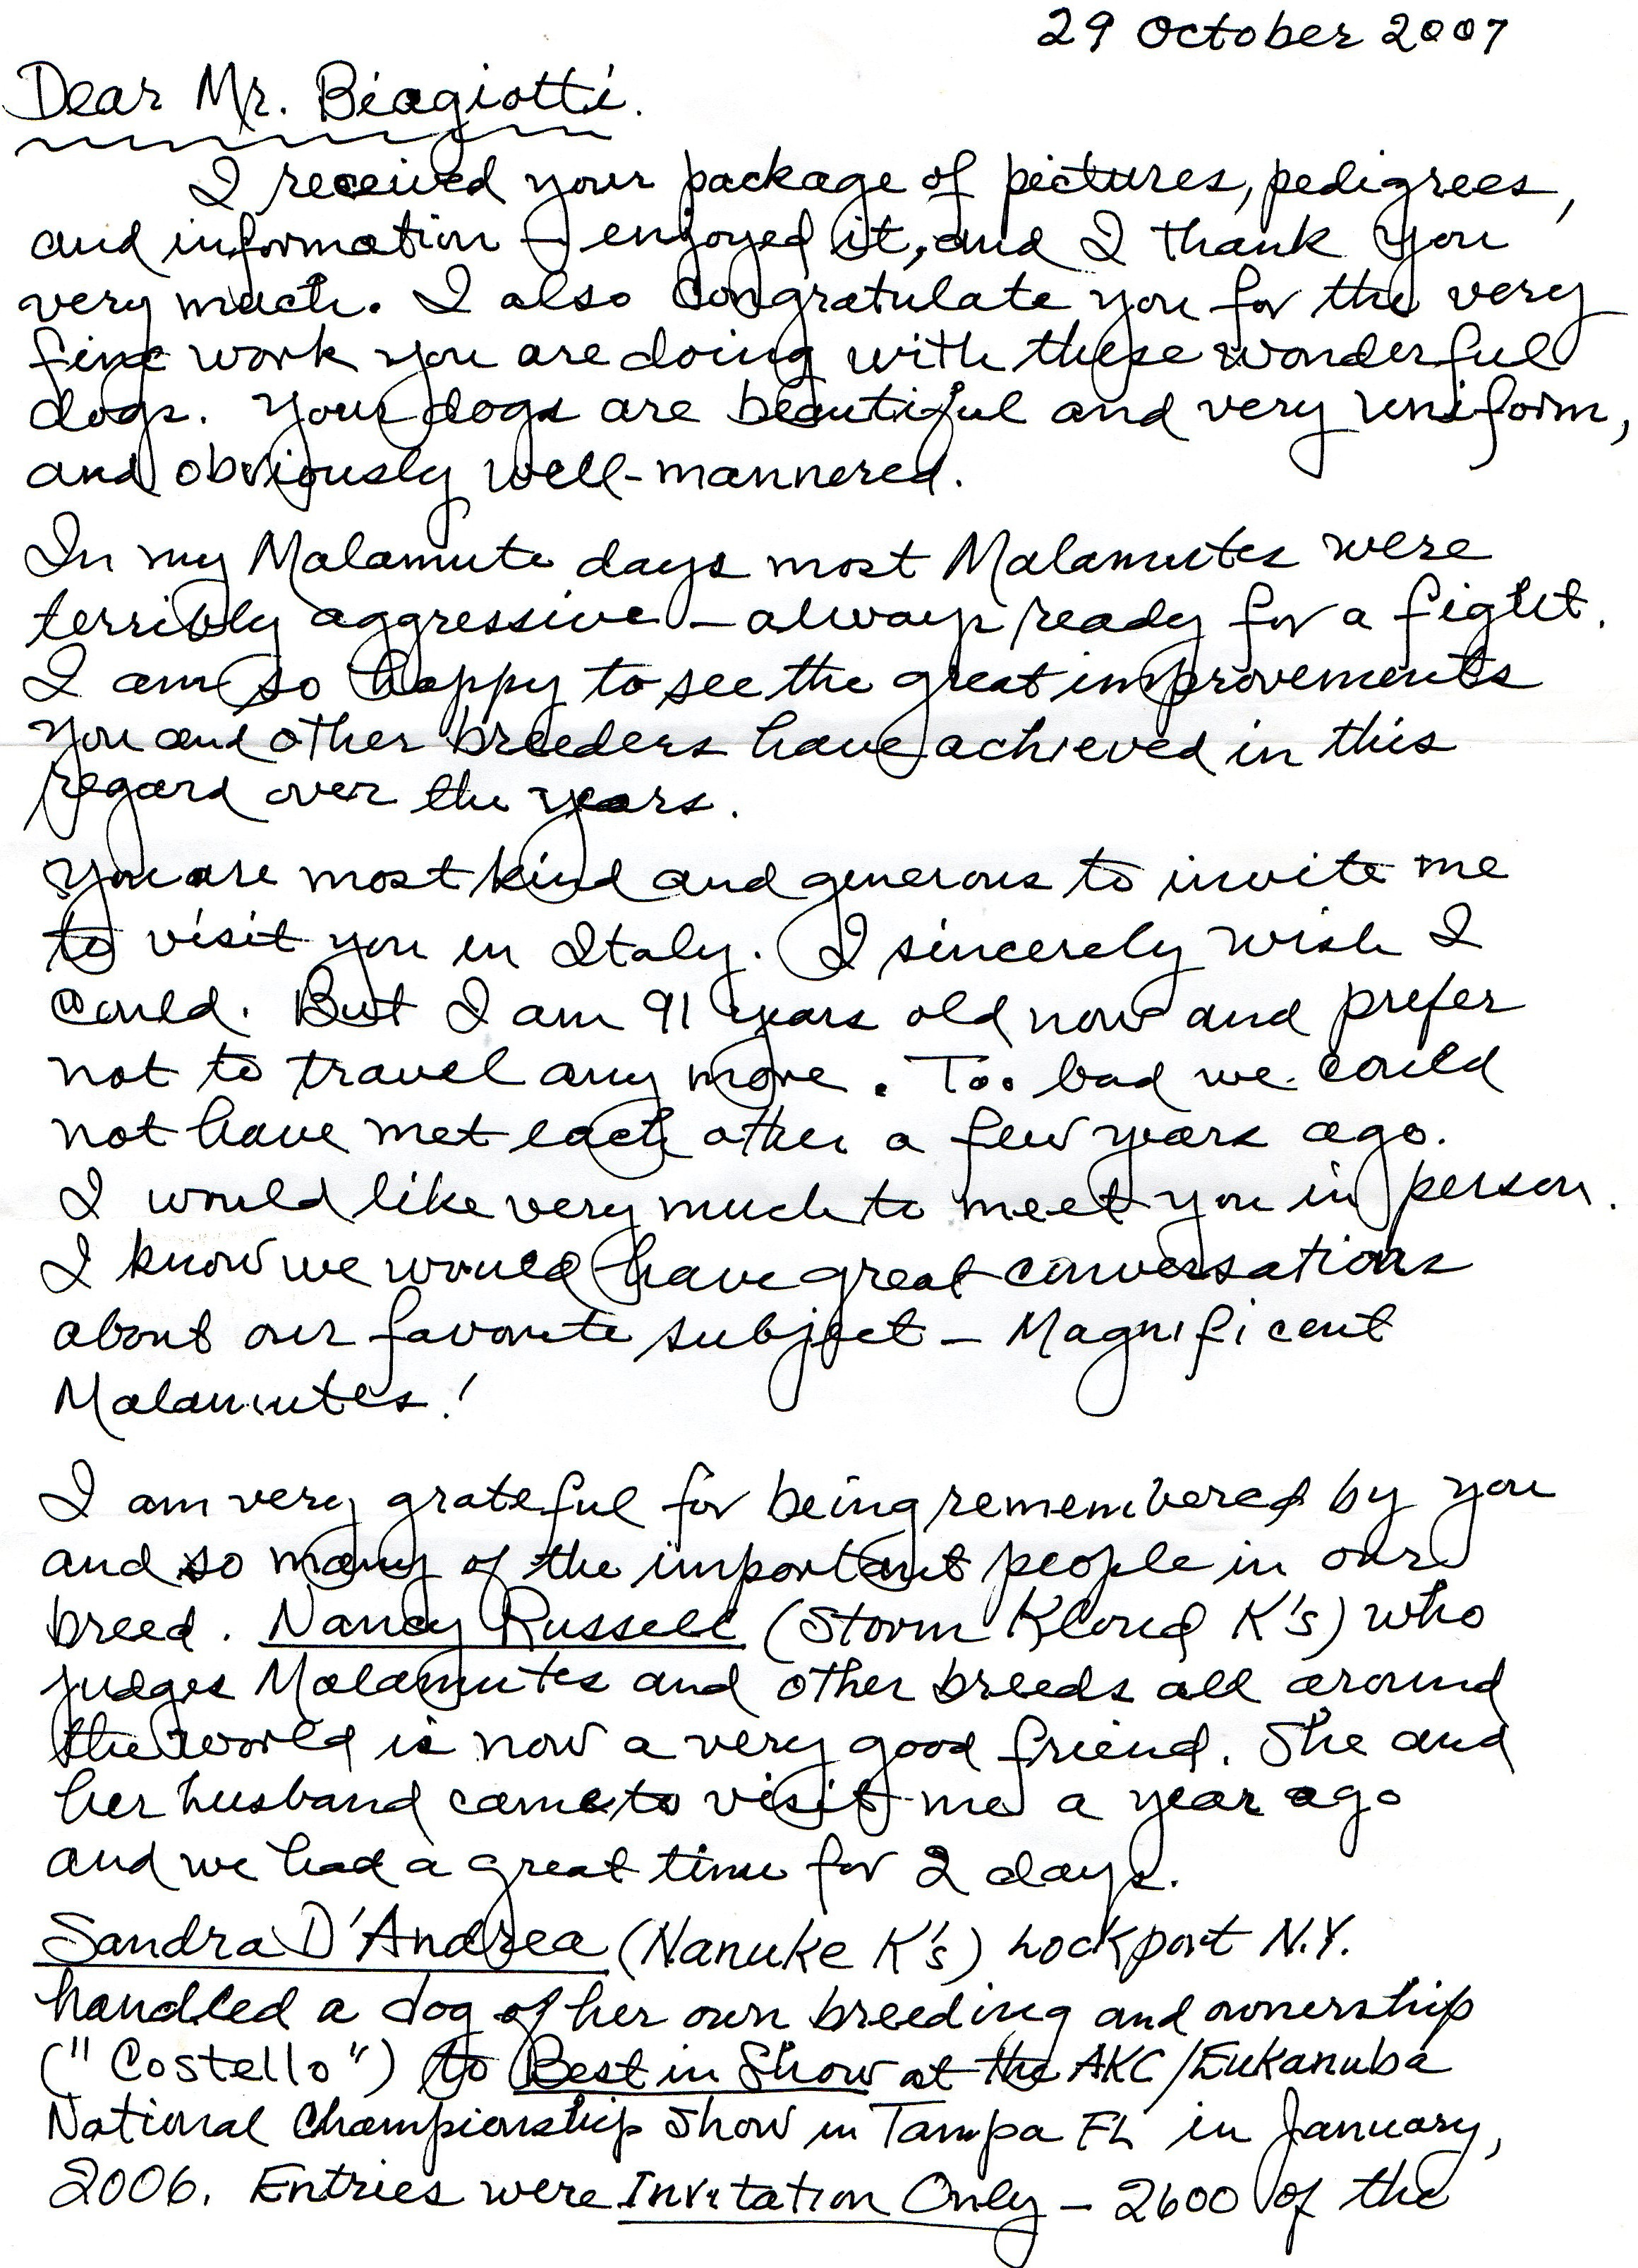 29 October 2007
Dear Mr. Biagiotti.
I received your package of pictures, pedigrees,
and information – enjoyed it, and I thank you
very much. I also congratulate you for the very
fine work you are doing with these wonderful
dogs. Your dogs are beautiful and very uniform,
and obviously well-mannered.
In my Malamute days most Malamutes were
terribly aggressive – always ready for a fight.
I am so happy to see the great improvements
you and other breeders have achieved in this
regard over the years.
You are most kind and generous to invite me
to visit you in Italy. I sincerely wish I
could. But I am 91 years old now and prefer
not to travel any more. Too bad we could
not have met each other a few years ago.
I would like very much to meet you in person.
I know we would have great conversations
about our favorite subject – Magnificent
Malamutes!
I am very grateful for being remembered by you
and so many of the important people in our
breed. Nancy Russell (Storm Kloud K's) who
judges Malamutes and other breeds all around
the world is now a very good friend. She and
her husband came to visit me a year ago
and we had a great time for 2 days.
Sandra D'Andrea (Nanuke K's) Lockport N.Y.
handled a dog of her own breeding and ownership
("Costello") to Best in Show at the AKC/Eukanuba
National Championship Show in Tampa FL in January,
2006. Entries were Invitation Only – 2600 of the